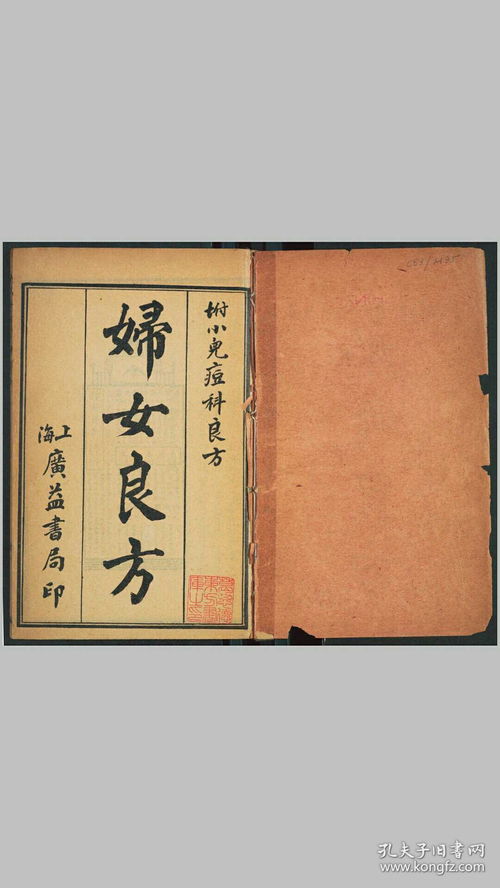 附小兒痘科良方
婦女良方
上海
廣益書局印
孔夫子旧书网
www.kongfz.com